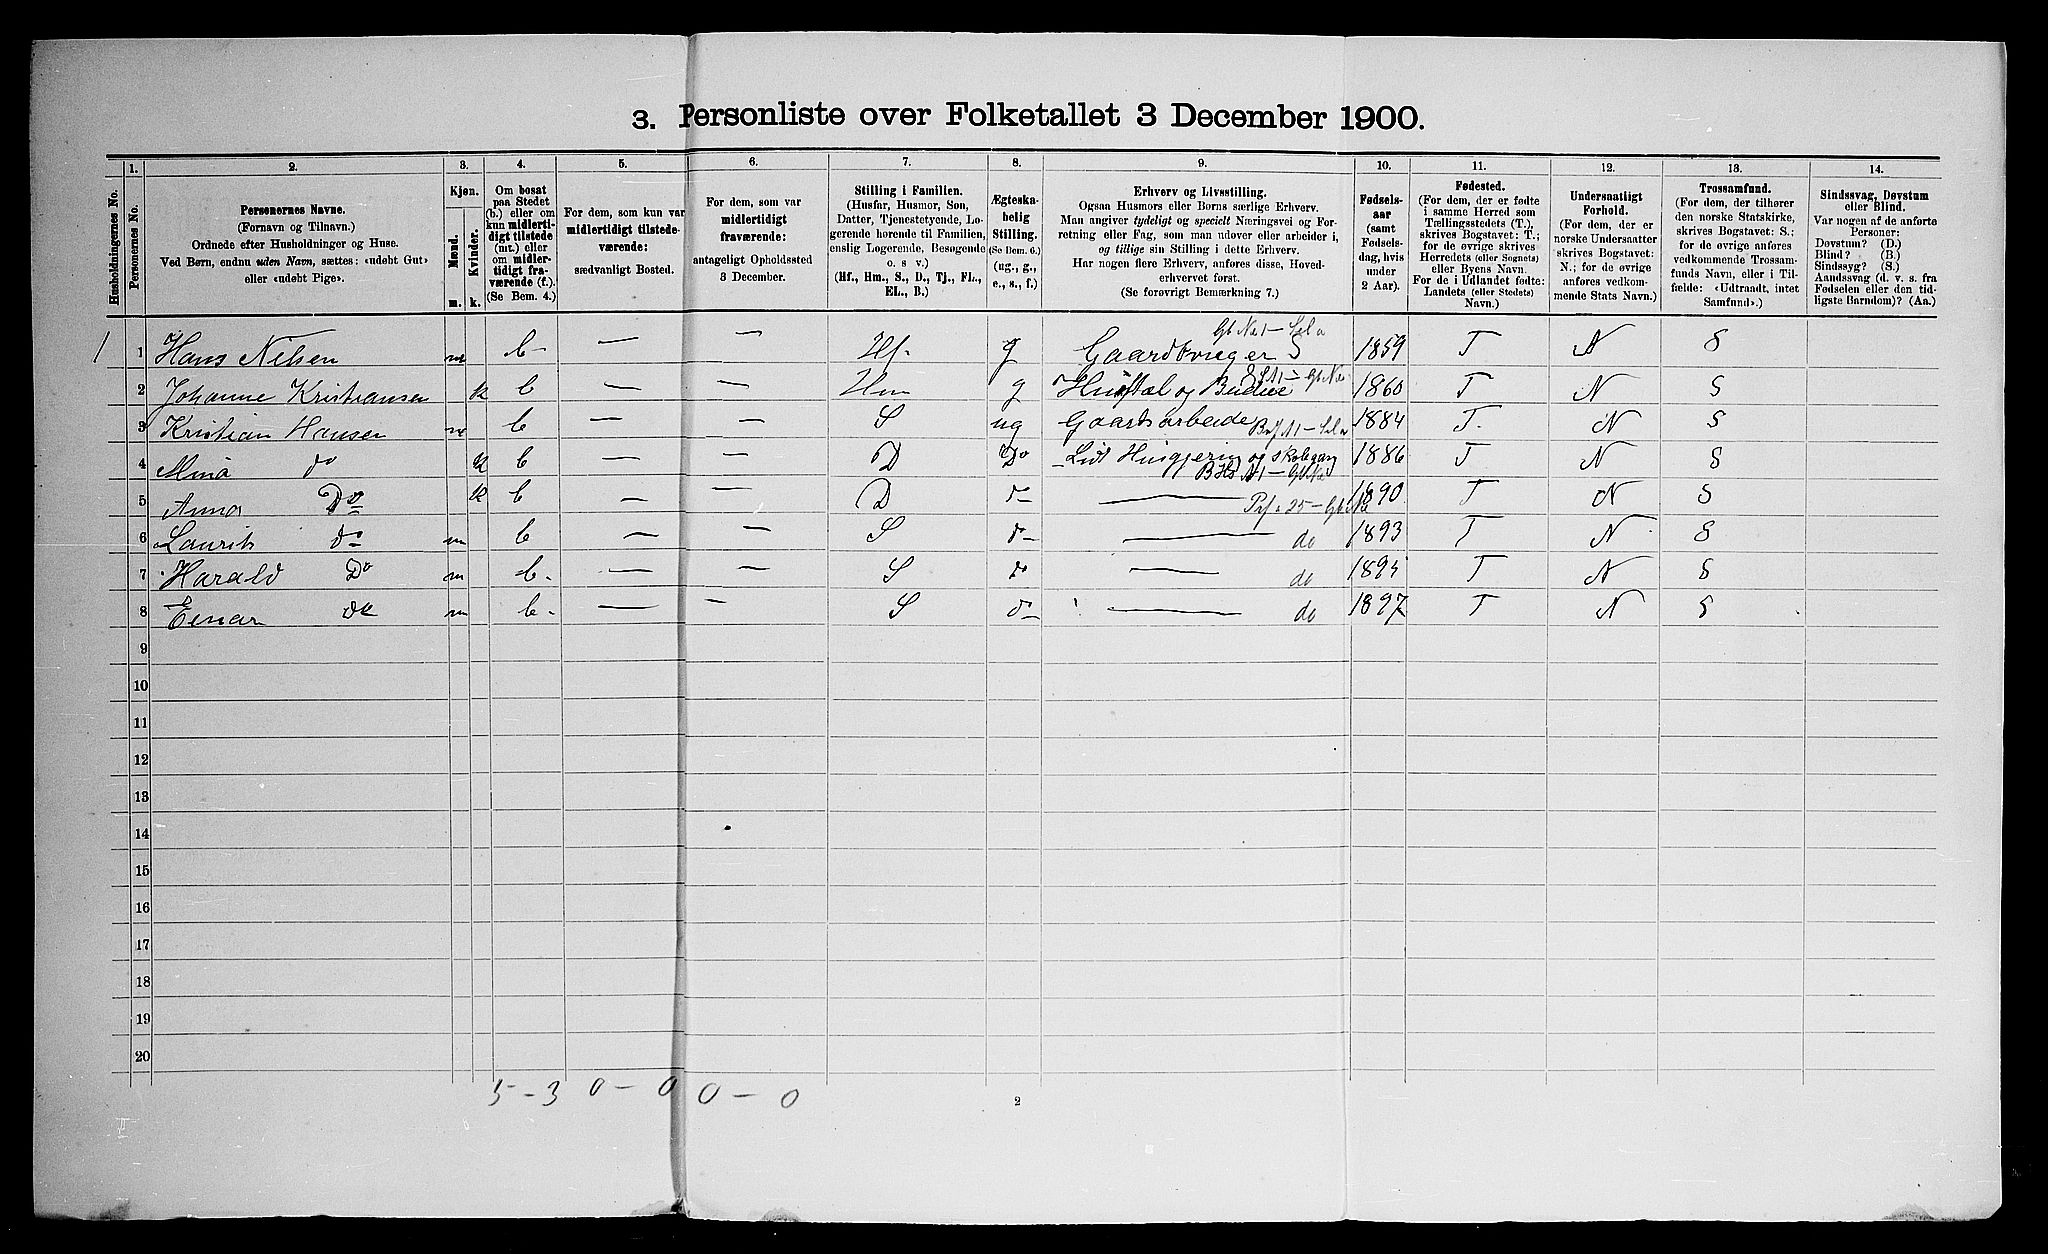 3. Personliste over Folketallet 3 December 1900.
Husholdningernes No.
1. Personernes No.
2. Personernes Navne. (Fornavn og Tilnavn.) Ordnede efter Husholdninger og Huse. Ved Børn, endnu uden Navn, sættes: «udøbt Gut» eller «udøbt Pige».
3. Kjøn. Mænd. m. Kvinder. k.
4. Om bosat paa Stedet (b.) eller om kun midlertidigt tilstede (mt.) eller om midlertidigt fraværende (f.). (Se Bem. 4.)
5. For dem, som kun var midlertidigt tilstedeværende: sædvanligt Bosted.
6. For dem, som var midlertidigt fraværende: antageligt Opholdssted 3 December.
7. Stilling i Familien. (Husfar, Husmor, Søn, Datter, Tjenestetyende, Logerende hørende til Familien, enslig Logerende, Besøgende o. s v.) (Hf., Hm., S., D., Tj., FL., EL., B.)
8. Ægteskabelig Stilling. (Se Bem. 6.) (ug., g., e., s., f.)
9. Erhverv og Livsstilling. Ogsaa Husmors eller Børns særlige Erhverv. Man angiver tydeligt og specielt Næringsvei og Forretning eller Fag, som man udøver eller arbeider i, og tillige sin Stilling i dette Erhverv. Har nogen flere Erhverv, anføres disse, Hovederhvervet først. (Se forøvrigt Bemærkning 7.)
10. Fødselsaar (samt Fødselsdag, hvis under 2 Aar).
11. Fødested. (For dem, der er fødte i samme Herred som Tællingsstedets (T.), skrives Bogstavet: T.; for de øvrige skrives Herredets (eller Sognets) eller Byens Navn. For de i Udlandet fødte: Landets (eller Stedets) Navn.)
12. Undersaatligt Forhold. (For dem, der er norske Undersaatter skrives Bogstavet: N.; for de øvrige anføres vedkommende Stats Navn.)
13. Trossamfund. (For dem, der tilhører den norske Statskirke, skrives Bogstavet: S.; for de øvrige anføres vedkommende Trossamfunds Navn, eller i Tilfælde: «Udtraadt, intet Samfund».)
14. Sindssvag, Døvstum eller Blind. Var nogen af de anførte Personer: Døvstum? (D.) Blind? (B.) Sindssyg? (S.) Aandssvag (d. v. s. fra Fødselen eller den tidligste Barndom)? (Aa.)
1 1 Hans Nilsen m b - — — Hf. g Gaardbruger 1859 T N S
2 Johanne Kristiansen k b — — Hm g Husstæl og Budeie 1860 T N S
3 Kristian Hansen m b — — S ug Gaardsarbeide 1884 T. N S
4 Mina do k b — — D Do Lidt Husgjerning og Skolegang 1886 T N S
5 Anna Do k b — — D d- — 1890 T N S
6 Laurits do m b — — S d- — do 1893 T N S
7 Harald Do m b. — — S do — do 1895 T N S
8 Einar do m b. — — S d- — do 1897 T N S
9
10
11
12
13
14
15
16
17
18
19
20
5 - 3 0 - 0 0 - 0
2